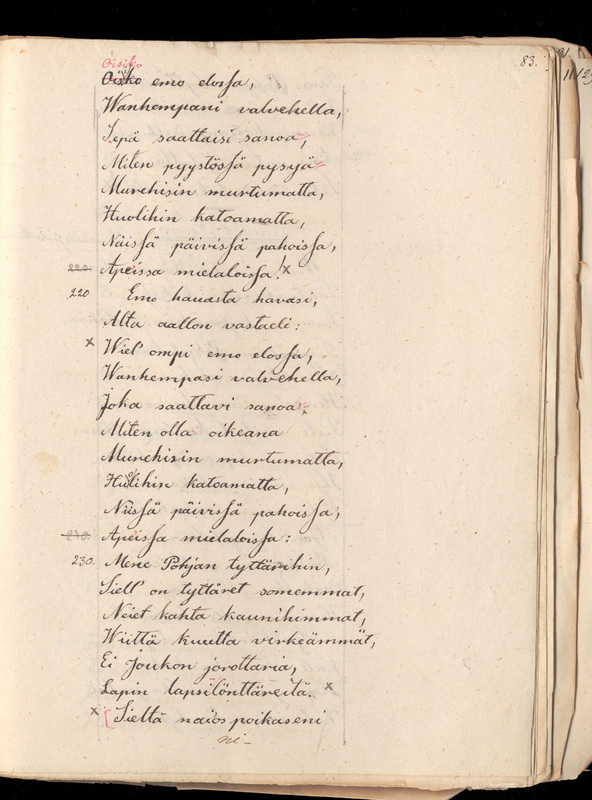 83.
Oisiko
Oisko emo elossa,
Wanhempani valvehella,
Sepä saattaisi sanoa,
Miten pyystössä pysyä
Murehisin murtumatta,
Huolihin katoamatta,
Näissä päivissä pahoissa,
220 Apeissa mielaloissa! x
220 Emo hauasta havasi,
Alta aallon vastaeli:
x Wiel' ompi emo elossa,
Wanhempasi valvehella,
Joka saattavi sanoa
Miten olla oikeana
Murehisin murtumatta,
Huolihin katoamatta,
Näissä päivissä pahoissa,
Apeissa mielaloissa:
230. Mene Pohjan tyttärihin,
Siell' on tyttäret somemmat,
Neiet kahta kaunihimmat,
Wiittä kuutta virkeämmät,
Ei Joukon jorottaria,
Lapin lapsilönttäreitä. x
x [Sieltä naios poikaseni
ni-